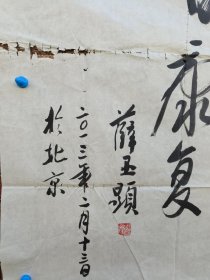 康复
薛玉显
二〇一三年二月十三日
於北京